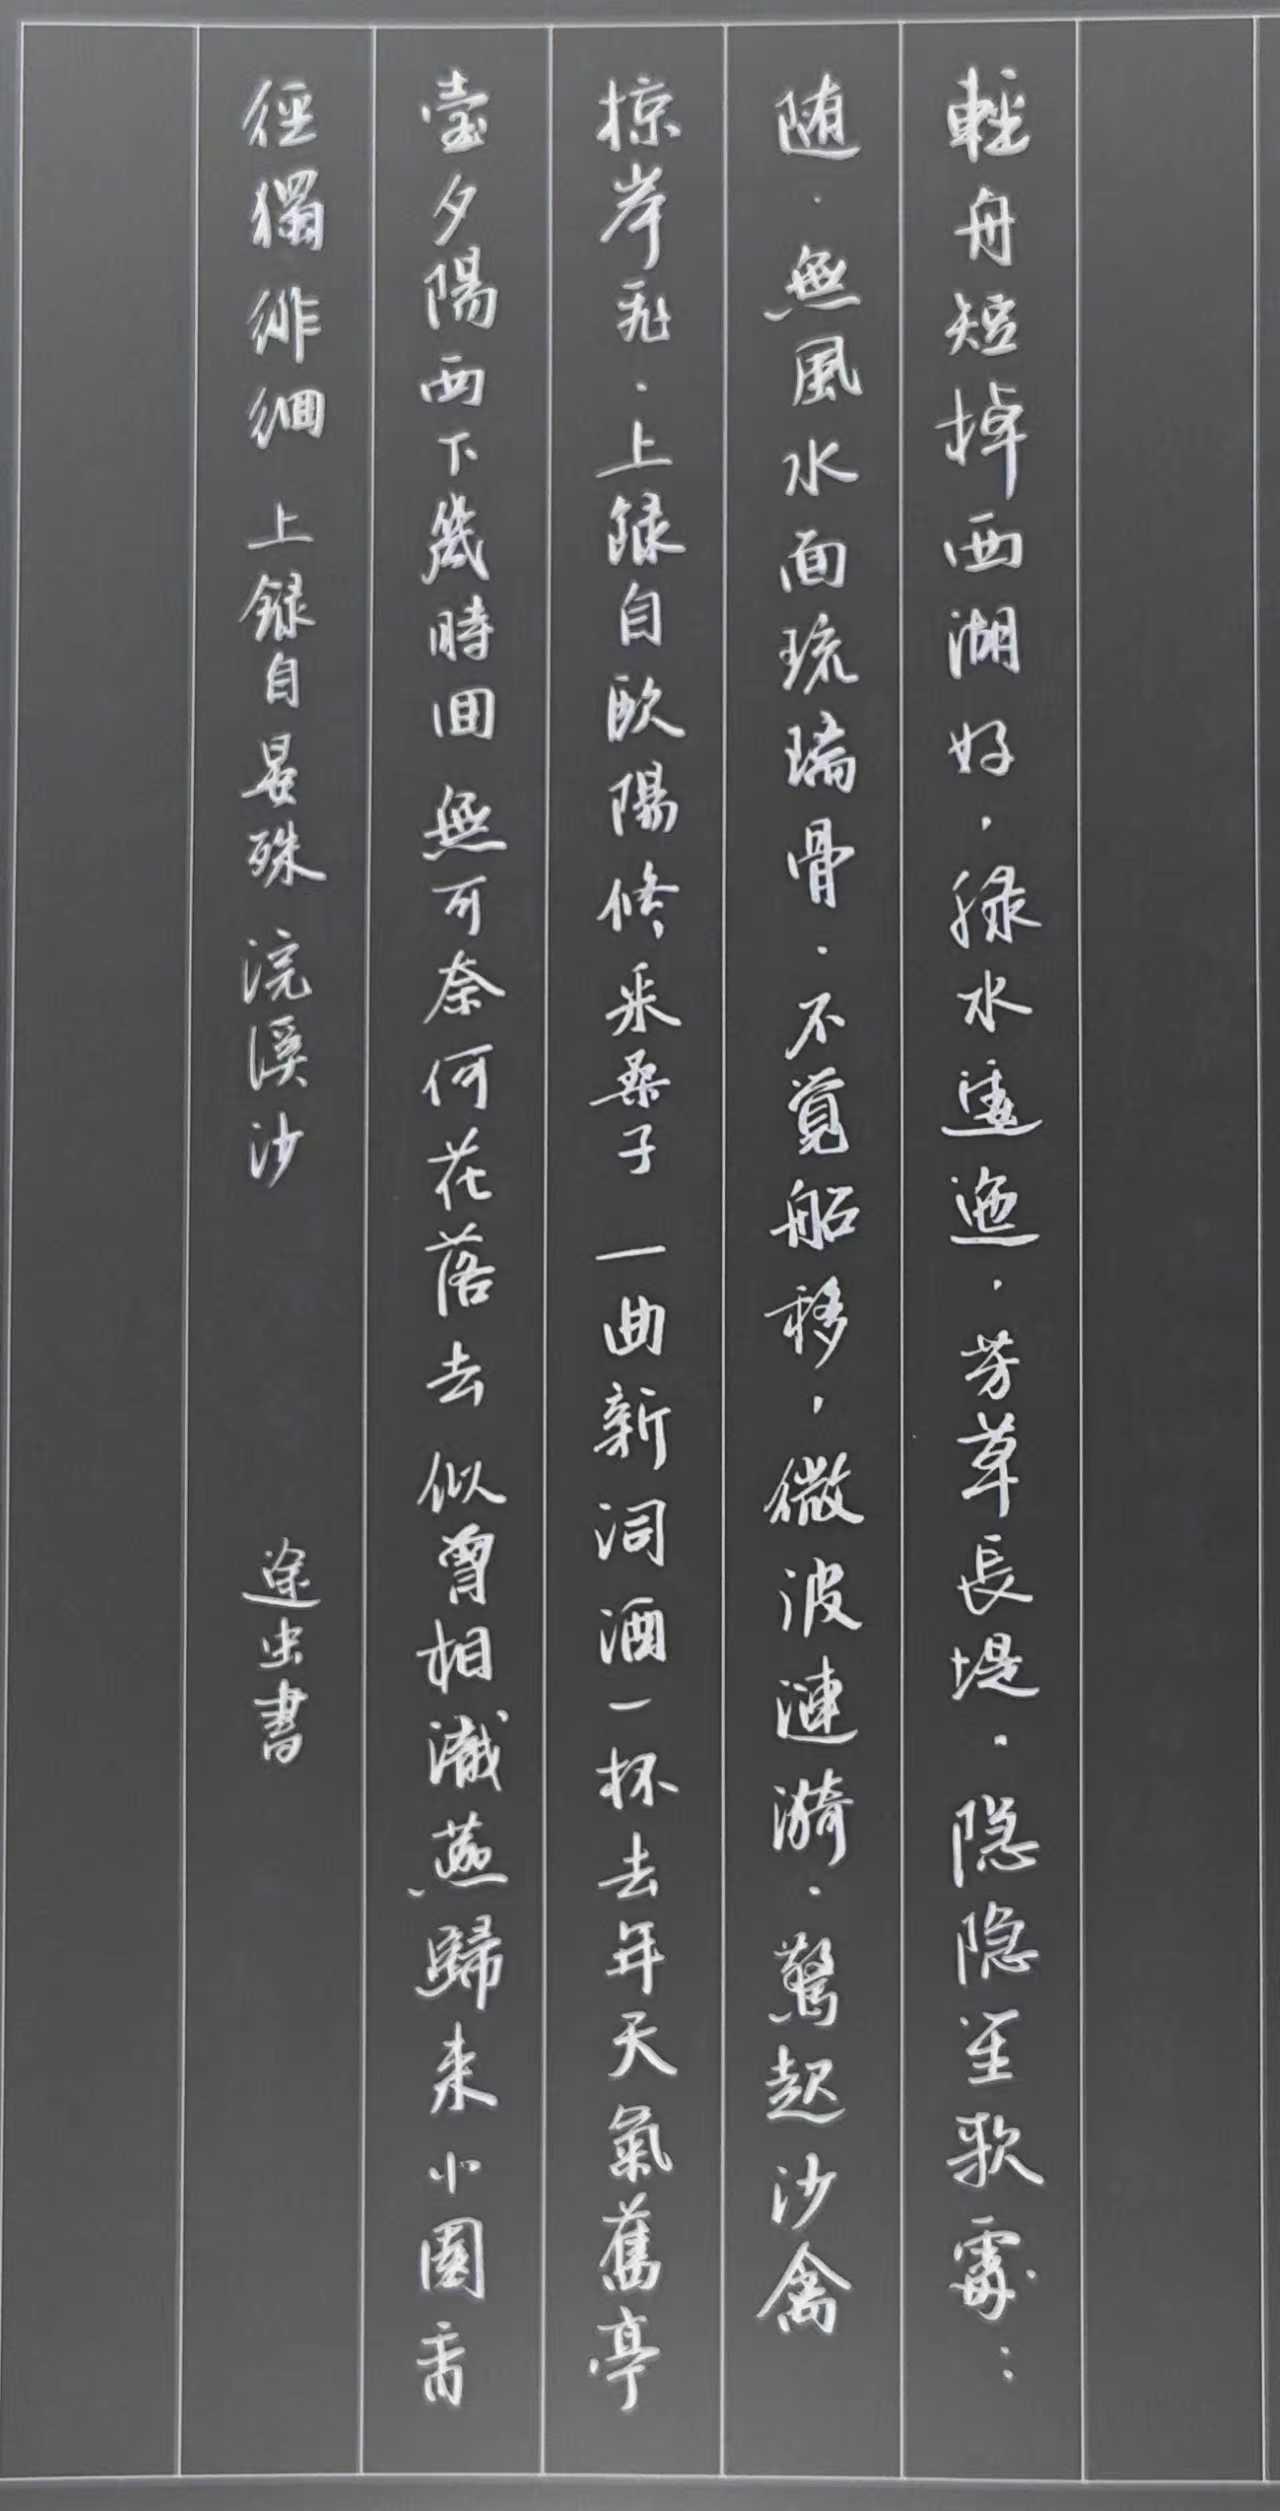 輕舟短掉西湖好，綠水逶迤，芳草長堤．隐隐笙歌處：
随．無風水面琉璃骨．不覓船移，微波漣漪．驚起沙禽
掠岸飛．上録自欧陽修采桑子 一曲新词酒一杯去年天氣舊亭
臺夕陽西下幾時回 無可奈何花落去 似曾相識燕歸来小園香
徑獨徘徊 上録自晏殊浣溪沙 途虫書